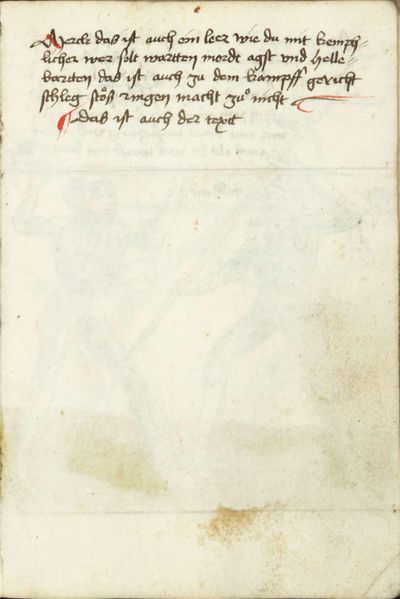 Merck das ist auch ein leer wie du mit kempf-
licher wer solt wartten mordt agst vnd helle-
bartten das ist auch zu dem kampff gericht
schleg stös ringen macht zuͦ nicht
das ist auch der text